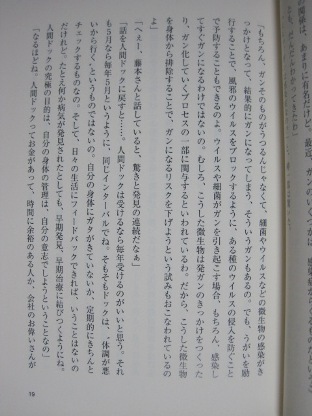 「もちろん、ガンそのものがうつるんじゃなくて、細菌やウイルスなどの微生物の感染がき
っかけとなって、結果的にガンになってしまう、そういうガンもあるの。でも、うがいを励
行することで、風邪のウイルスをブロックするように、ある種のウイルスの侵入を防ぐこと
で予防することもできるのよ。ウイルスや細菌がガンを引き起こす場合、もちろん、感染し
てすぐガンになるわけではないの。むしろ、こうした微生物は発ガンのきっかけをつくった
り、ガン化していくプロセスの一部に関与するといわれているわ。だから、こうした微生物
を身体から排除することで、ガンになるリスクを下げようという試みもおこなわれているの
よ」
「へぇー、藤本さんと話していると、驚きと発見の連続だなぁ」
「話を人間ドックに戻すと……、人間ドックは受けるなら毎年受けるのがいいと思う。それ
も５月なら毎年５月というように、同じインターバルでね。そもそもドックは、〝体調が悪
いから行く〟というものではないの。自分の身体にガタがきていないか、定期的にきちんと
チェックするものなの。そして、日々の生活にフィードバックできれば、いうことはないの
だけれど。たとえ何か病気が発見されたとしても、早期発見、早期治療に結びつくようにね。
人間ドックの究極の目的は、自分の身体の管理は、自分の意志でしようということなの」
「なるほどね。人間ドックってお金があって、時間に余裕のある人か、会社のお偉いさんが
19